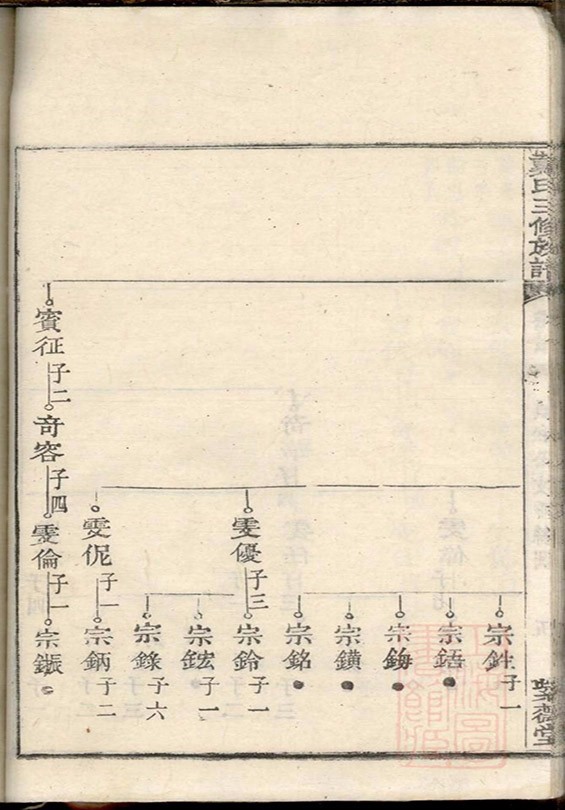 氏三修族譜
宗鉎子一
宗鋙
宗鋂
宗鐄
宗銘
雯優子三
宗鈴子一
宗鋐子一
宗錄子六
雯伲子一
宗鈵子二
賓征子二
奇容子四
雯倫子一
宗鋠